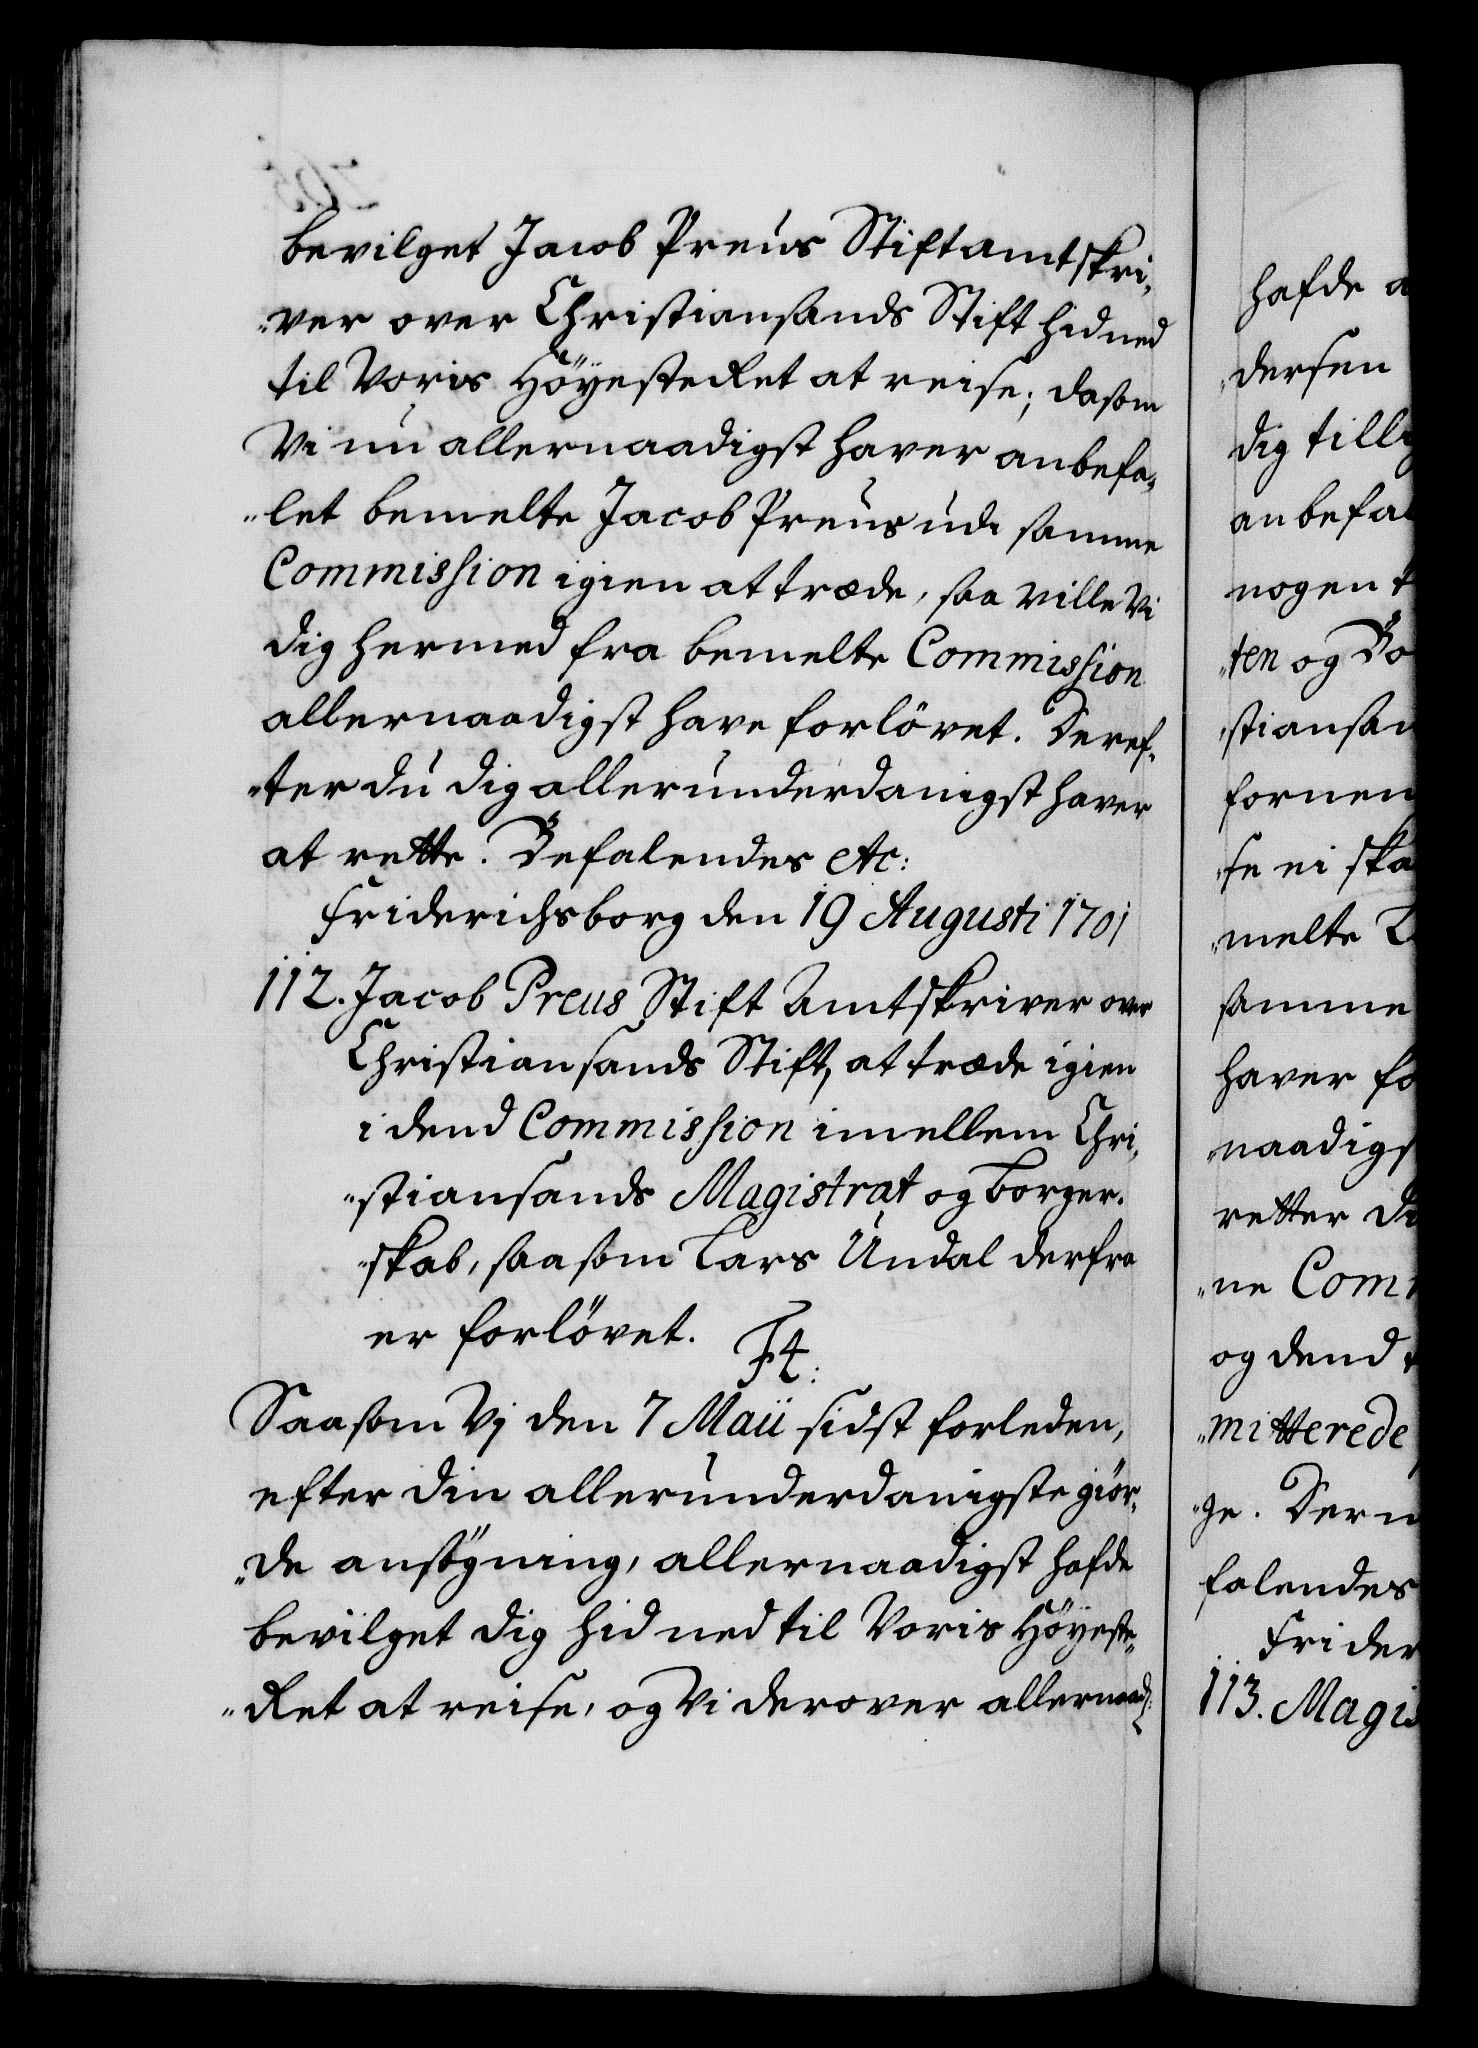 bevilget Jacob Preus Stiftamtskri-
"ver over Christiansands Stift hid ned
til Voris Höyeste Ret at reise; da som
Vi nu allernaadigst haver anbefa-
"let bemelte Jacob Preus udi samme
Commission igien at træde, saa ville Vi
dig hermed fra bemelte Commission
allernaadigst have forlövet. Deref-
"ter du dig allerunderdanigst haver
at rette. Befalendes etc:
Friderichsborg den 19 Augusti 1701
112. Jacob Preus Stift Amtskriver over
Christiansands Stift, at træde igien
i dend Commission imellem Chri-
"stiansands Magistrat og borger-
"skab, saasom Lars Undal derfra
er forlövet.
F4:
Saasom Vj den 7 Maii sidst forleden,
efter din allerunderdanigste giör-
"de ansögning, allernaadigst hafde
bevilget dig hid ned til Voris Höyeste-
"Ret at reise, og Vi derover allernaad:
hafde a
"dersen
dig till
anbefal
nogen t
"ten og Bo
"stiansan
fornen
"se ei ska
"melte L
samme
haver fo
"naadigs
retter di
"ne Com
og dend
"mitterede
"ge. Der
falendes
Frider
113. Magis